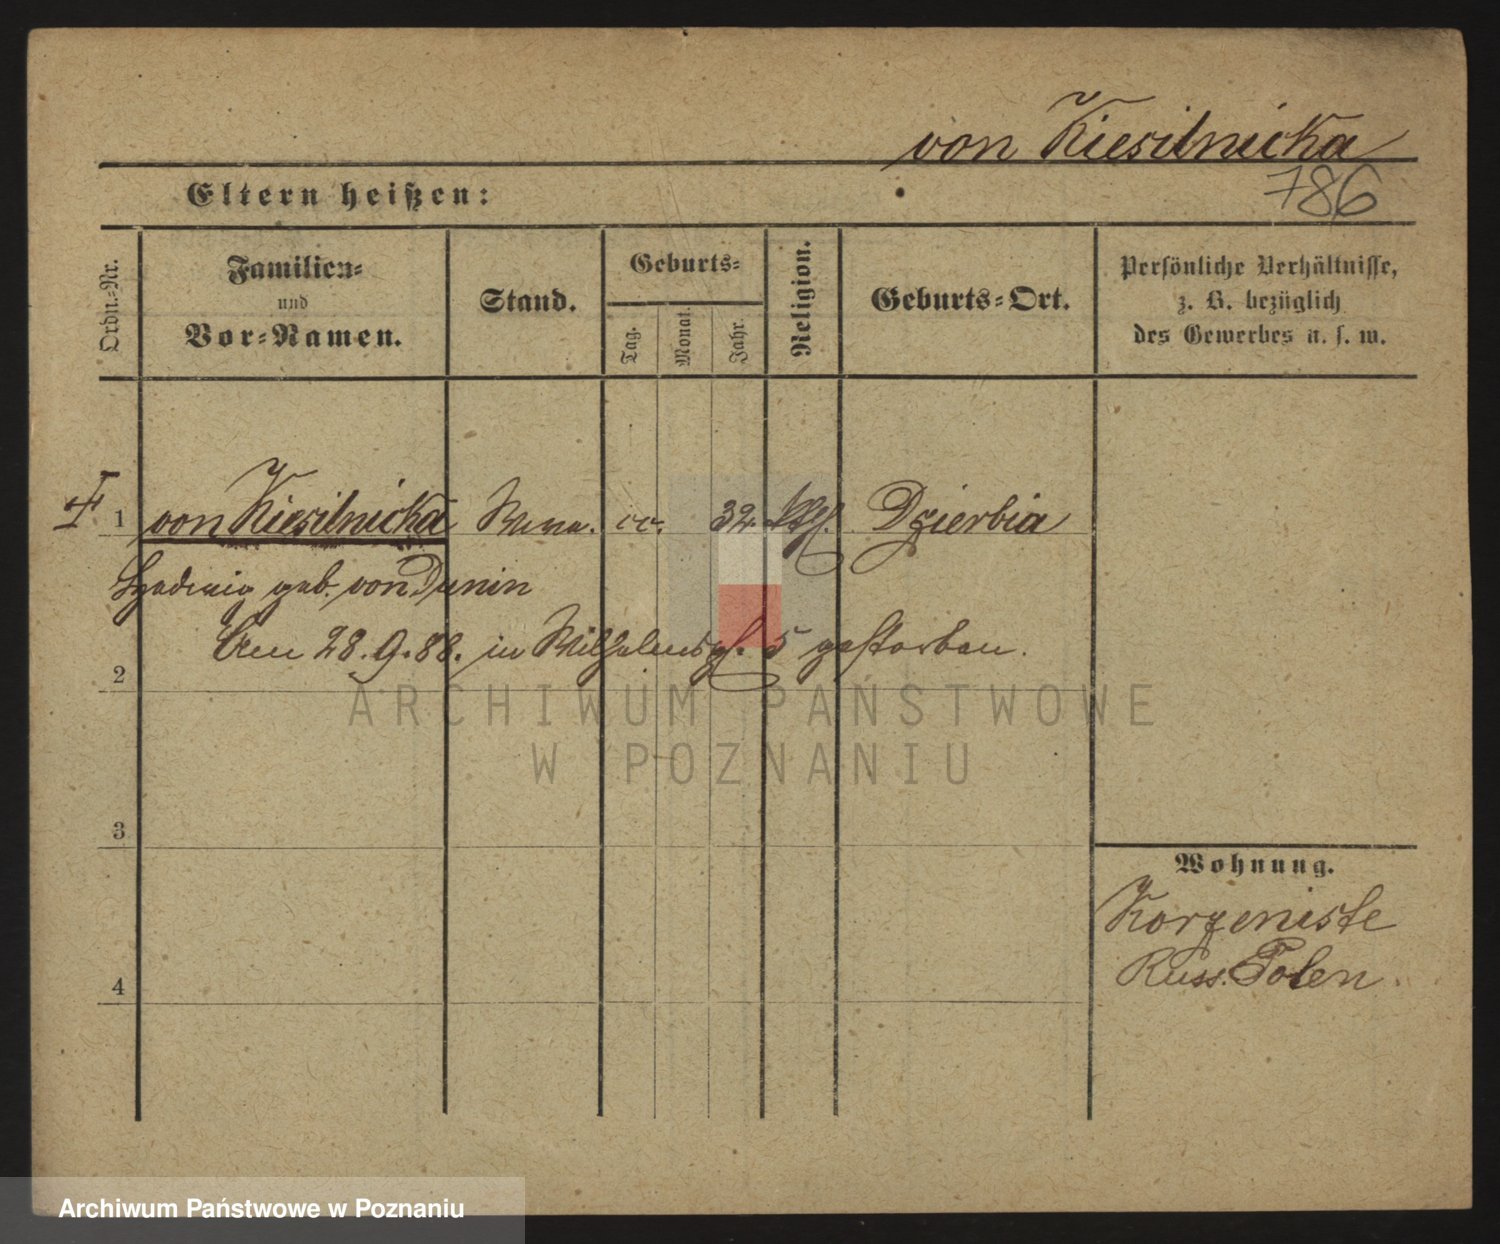 von Kiesilnicka
786
Eltern heißen:
Ordn.-Nr.
Familien-
und
Vor-Namen.
Stand.
Geburts-
Tag.
Monat.
Jahr.
Religion.
Geburts-Ort.
Persönliche Verhältnisse,
z. B. bezüglich
des Gewerbes u. s. w.
1 von Kiesilnicka Wwe. 32. Dzierbia
Hedwig geb. von Dunin
Am 28.9.88. in Wilhelmspl. 5 gestorben.
2
3
4
Wohnung.
Korzeniste
Russ. Polen.
ARCHIWUM PAŃSTWOWE
W POZNANIU
Archiwum Państwowe w Poznaniu